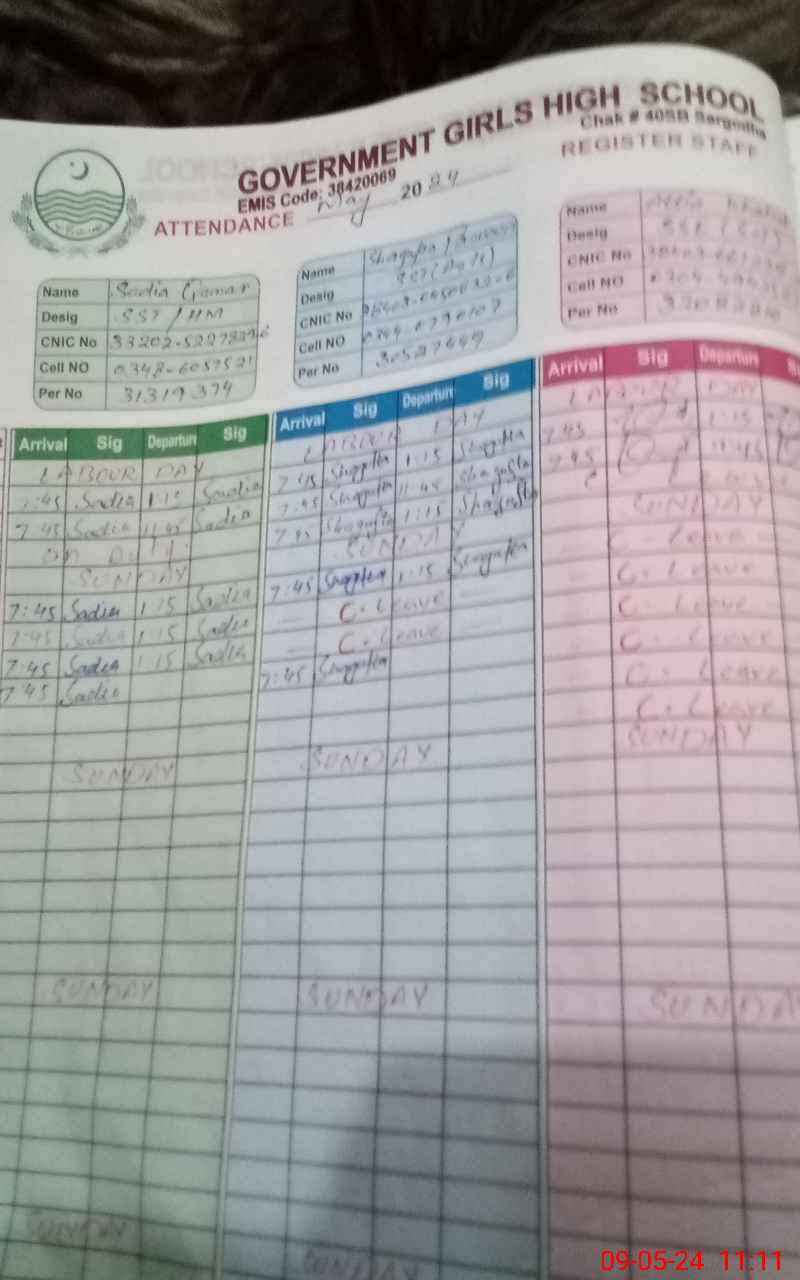 GOVERNMENT GIRLS HIGH SCHOOL
Chak # 40SB Sargodha
EMIS Code: 38420069
REGISTER STAFF
ATTENDANCE May 2024
Name Sadia Qamar
Desig SST / HM
CNIC No
Cell NO
Per No 31319374
Name Shagufta
Desig
CNIC No
Cell NO
Per No 30527449
Name
Desig
CNIC No
Cell NO
Per No
Arrival Sig Departure Sig
LABOUR DAY
7:45 Sadia 1:15 Sadia
7:45 Sadia 11:45 Sadia
on Duty
SUNDAY
7:45 Sadia 1:15 Sadia
7:45 Sadia 1:15 Sadia
7:45 Sadia 1:15 Sadia
7:45 Sadia
SUNDAY
SUNDAY
SUNDAY
Arrival Sig Departure Sig
LABOUR DAY
7:45 Shagufta 1:15 Shagufta
7:45 Shagufta 11:45 Shagufta
7:45 Shagufta 1:15 Shagufta
SUNDAY
7:45 Shagufta 1:15 Shagufta
C. Leave
C. Leave
7:45 Shagufta
SUNDAY
SUNDAY
SUNDAY
Arrival Sig Departure
LABOUR DAY
7:45 1:15
7:45 11:45
Leave
SUNDAY
C. Leave
C. Leave
C. Leave
C. Leave
C. Leave
C. Leave
SUNDAY
SUNDAY
09-05-24 11:11